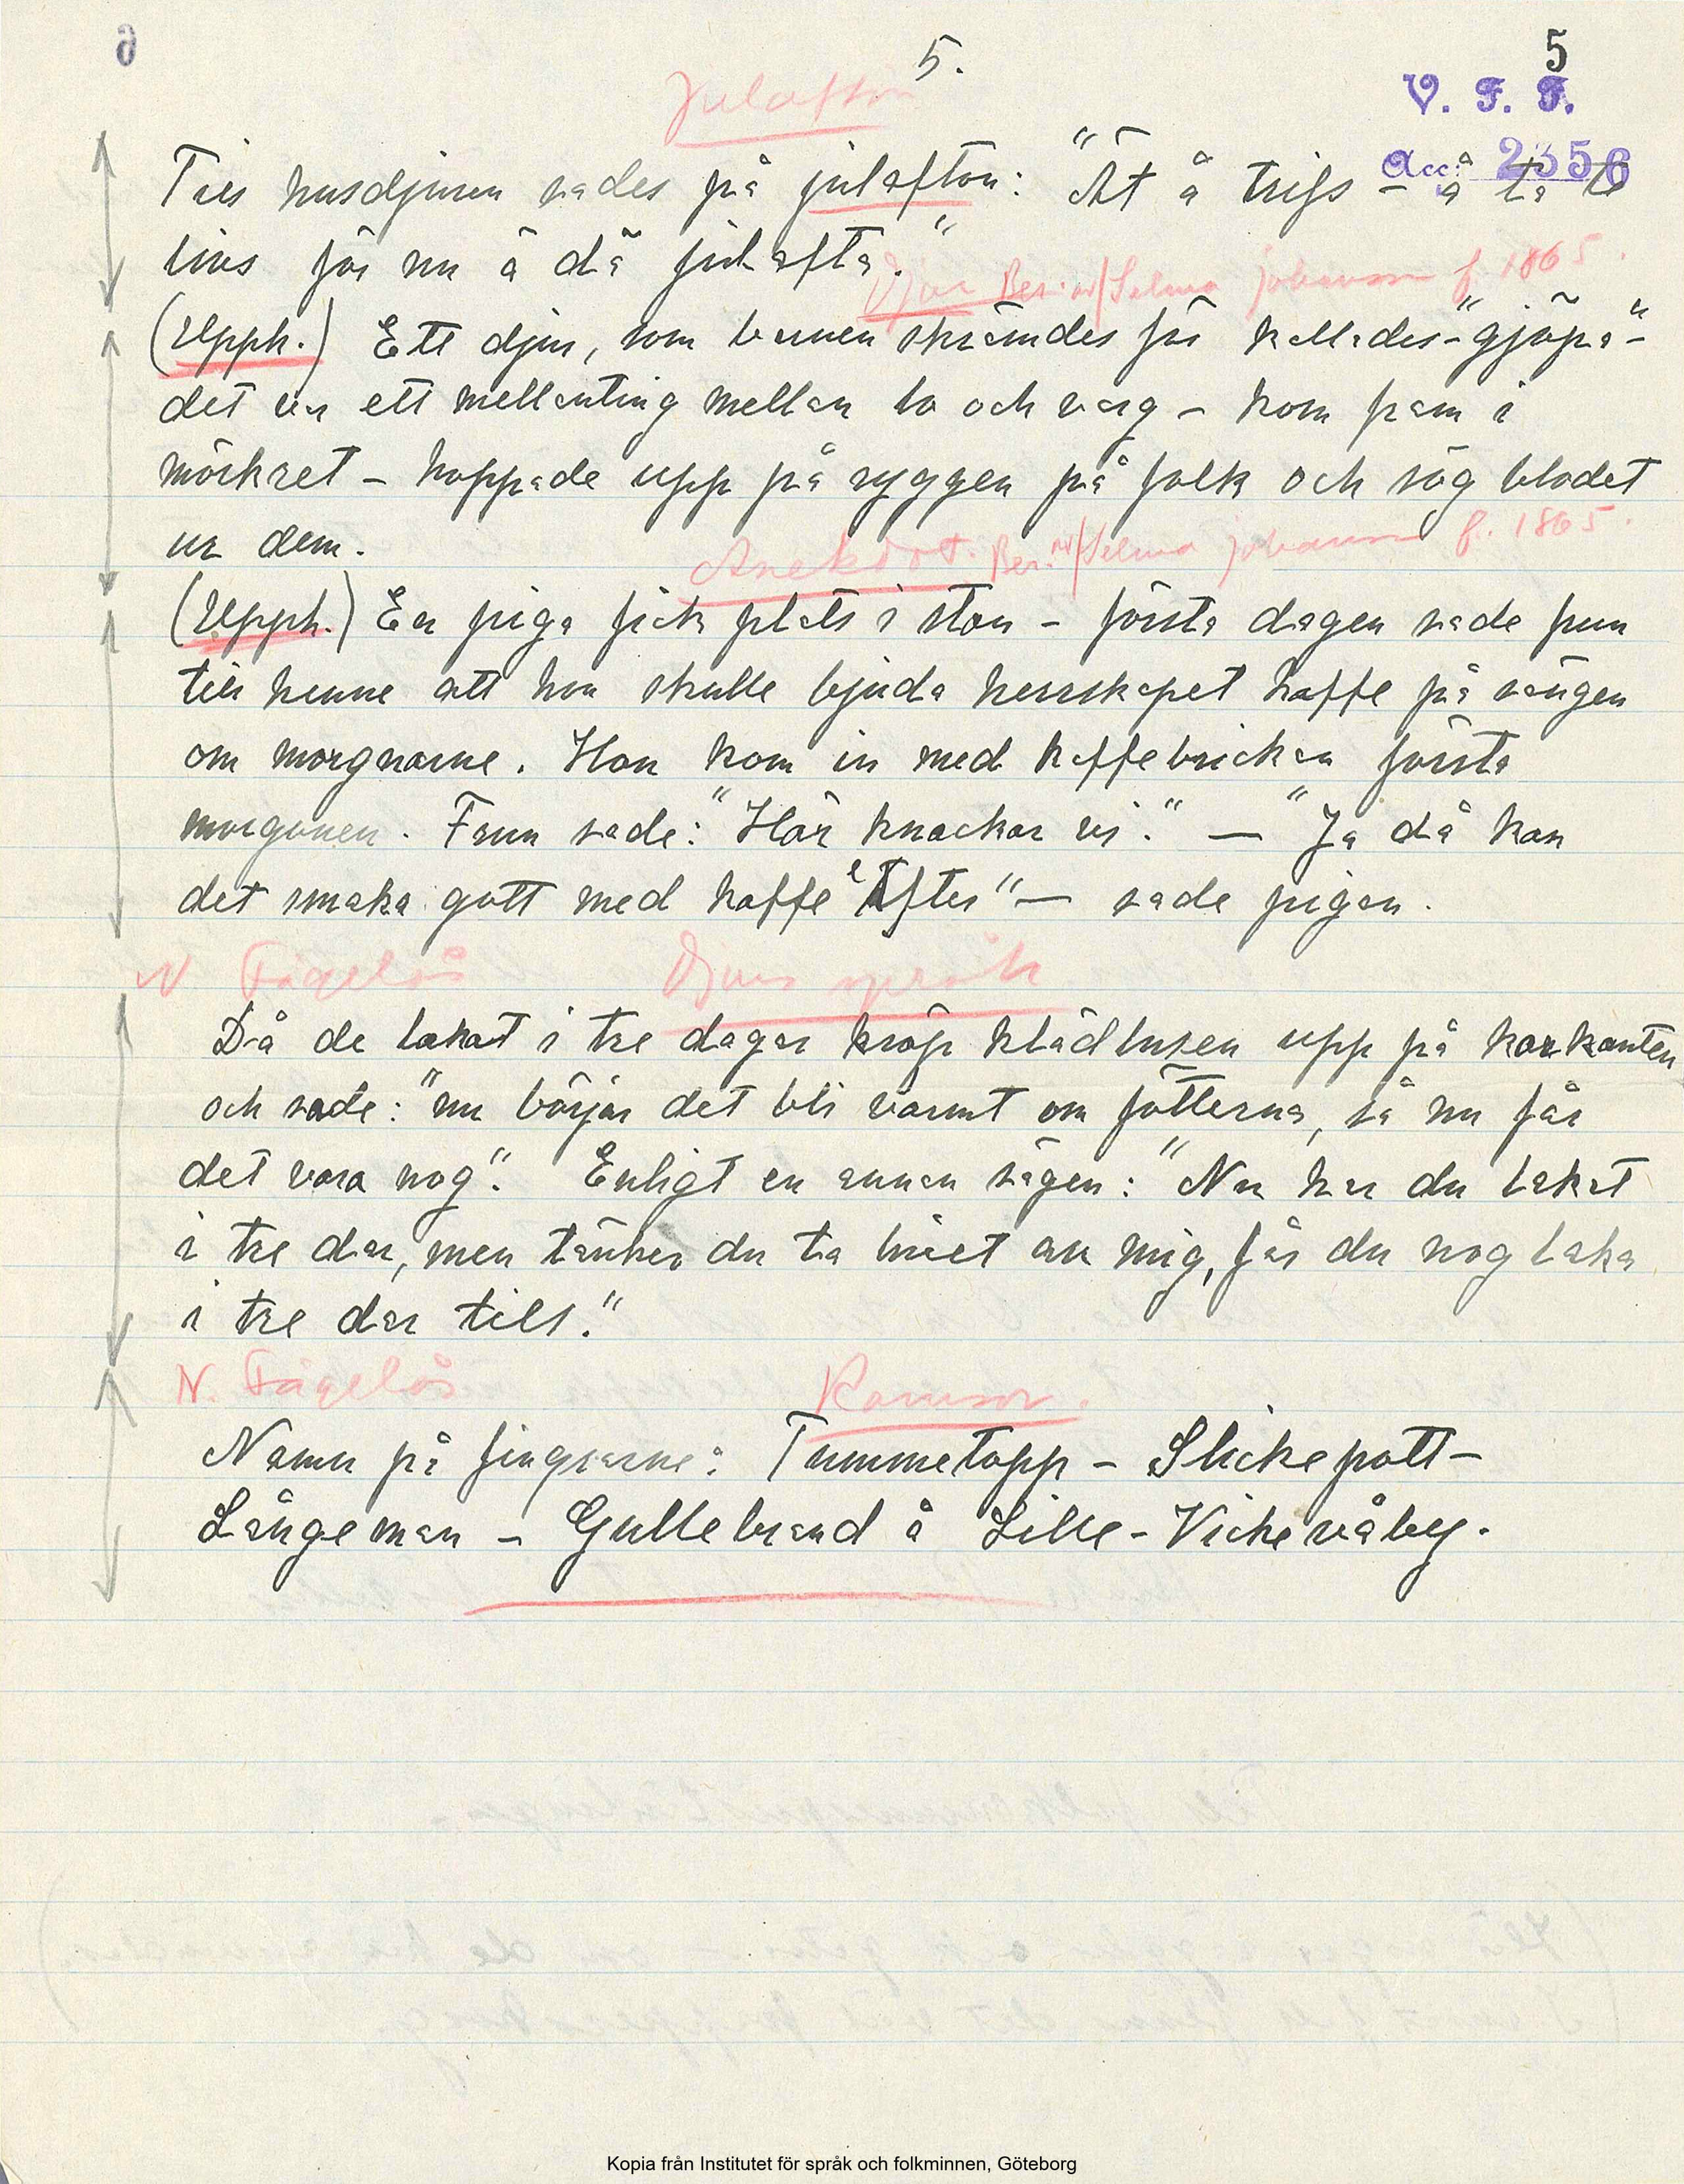 5.
5
Julafton
V. F. F.
Acc. 2356
Till husdjuren sades på julafton: "Ät å trifs - å ta te
livs för nu ä dä julafta."
Djur Ber. av/Selma Johansson f. 1865.
(Upph.) Ett djur, som barnen skrämdes för kallades "gjöpa" -
det var ett mellanting mellan lo och varg - kom fram i
mörkret - hoppade upp på ryggen på folk och sög blodet
ur dem.
Anekdot. Ber. av/Selma Johansson f. 1865.
(Upph.) En piga fick plats i stan - första dagen sade frun
till henne att hon skulle bjuda herrskapet kaffe på sängen
om morgnarne. Hon kom in med kaffebrickan första
morgonen. Frun sade: "Här knackar vi." — "Ja då kan
det smaka gott med kaffe efter" — sade pigan.
N Fågelås Djurs språk
Då de lakat i tre dagar kröp klädlusen upp på karkanten
och sade: "nu börjar det bli varmt om fötterna, så nu får
det vara nog". Enligt en annan sägen: "Nu har du lakat
i tre dar, men tänker du ta livet av mig, får du nog laka
i tre dar till."
N. Fågelås Ramsor.
Namn på fingrarne: Tummetopp - Slickepott -
Långeman - Gullebrand å Lille - Vickevåley.
Kopia från Institutet för språk och folkminnen, Göteborg